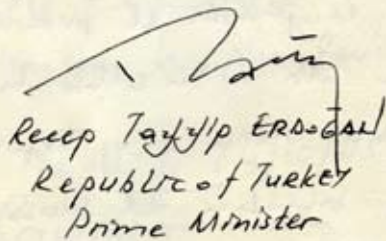 Recep Tayyip ERDOĞAN
Republic of TURKEY
Prime Minister